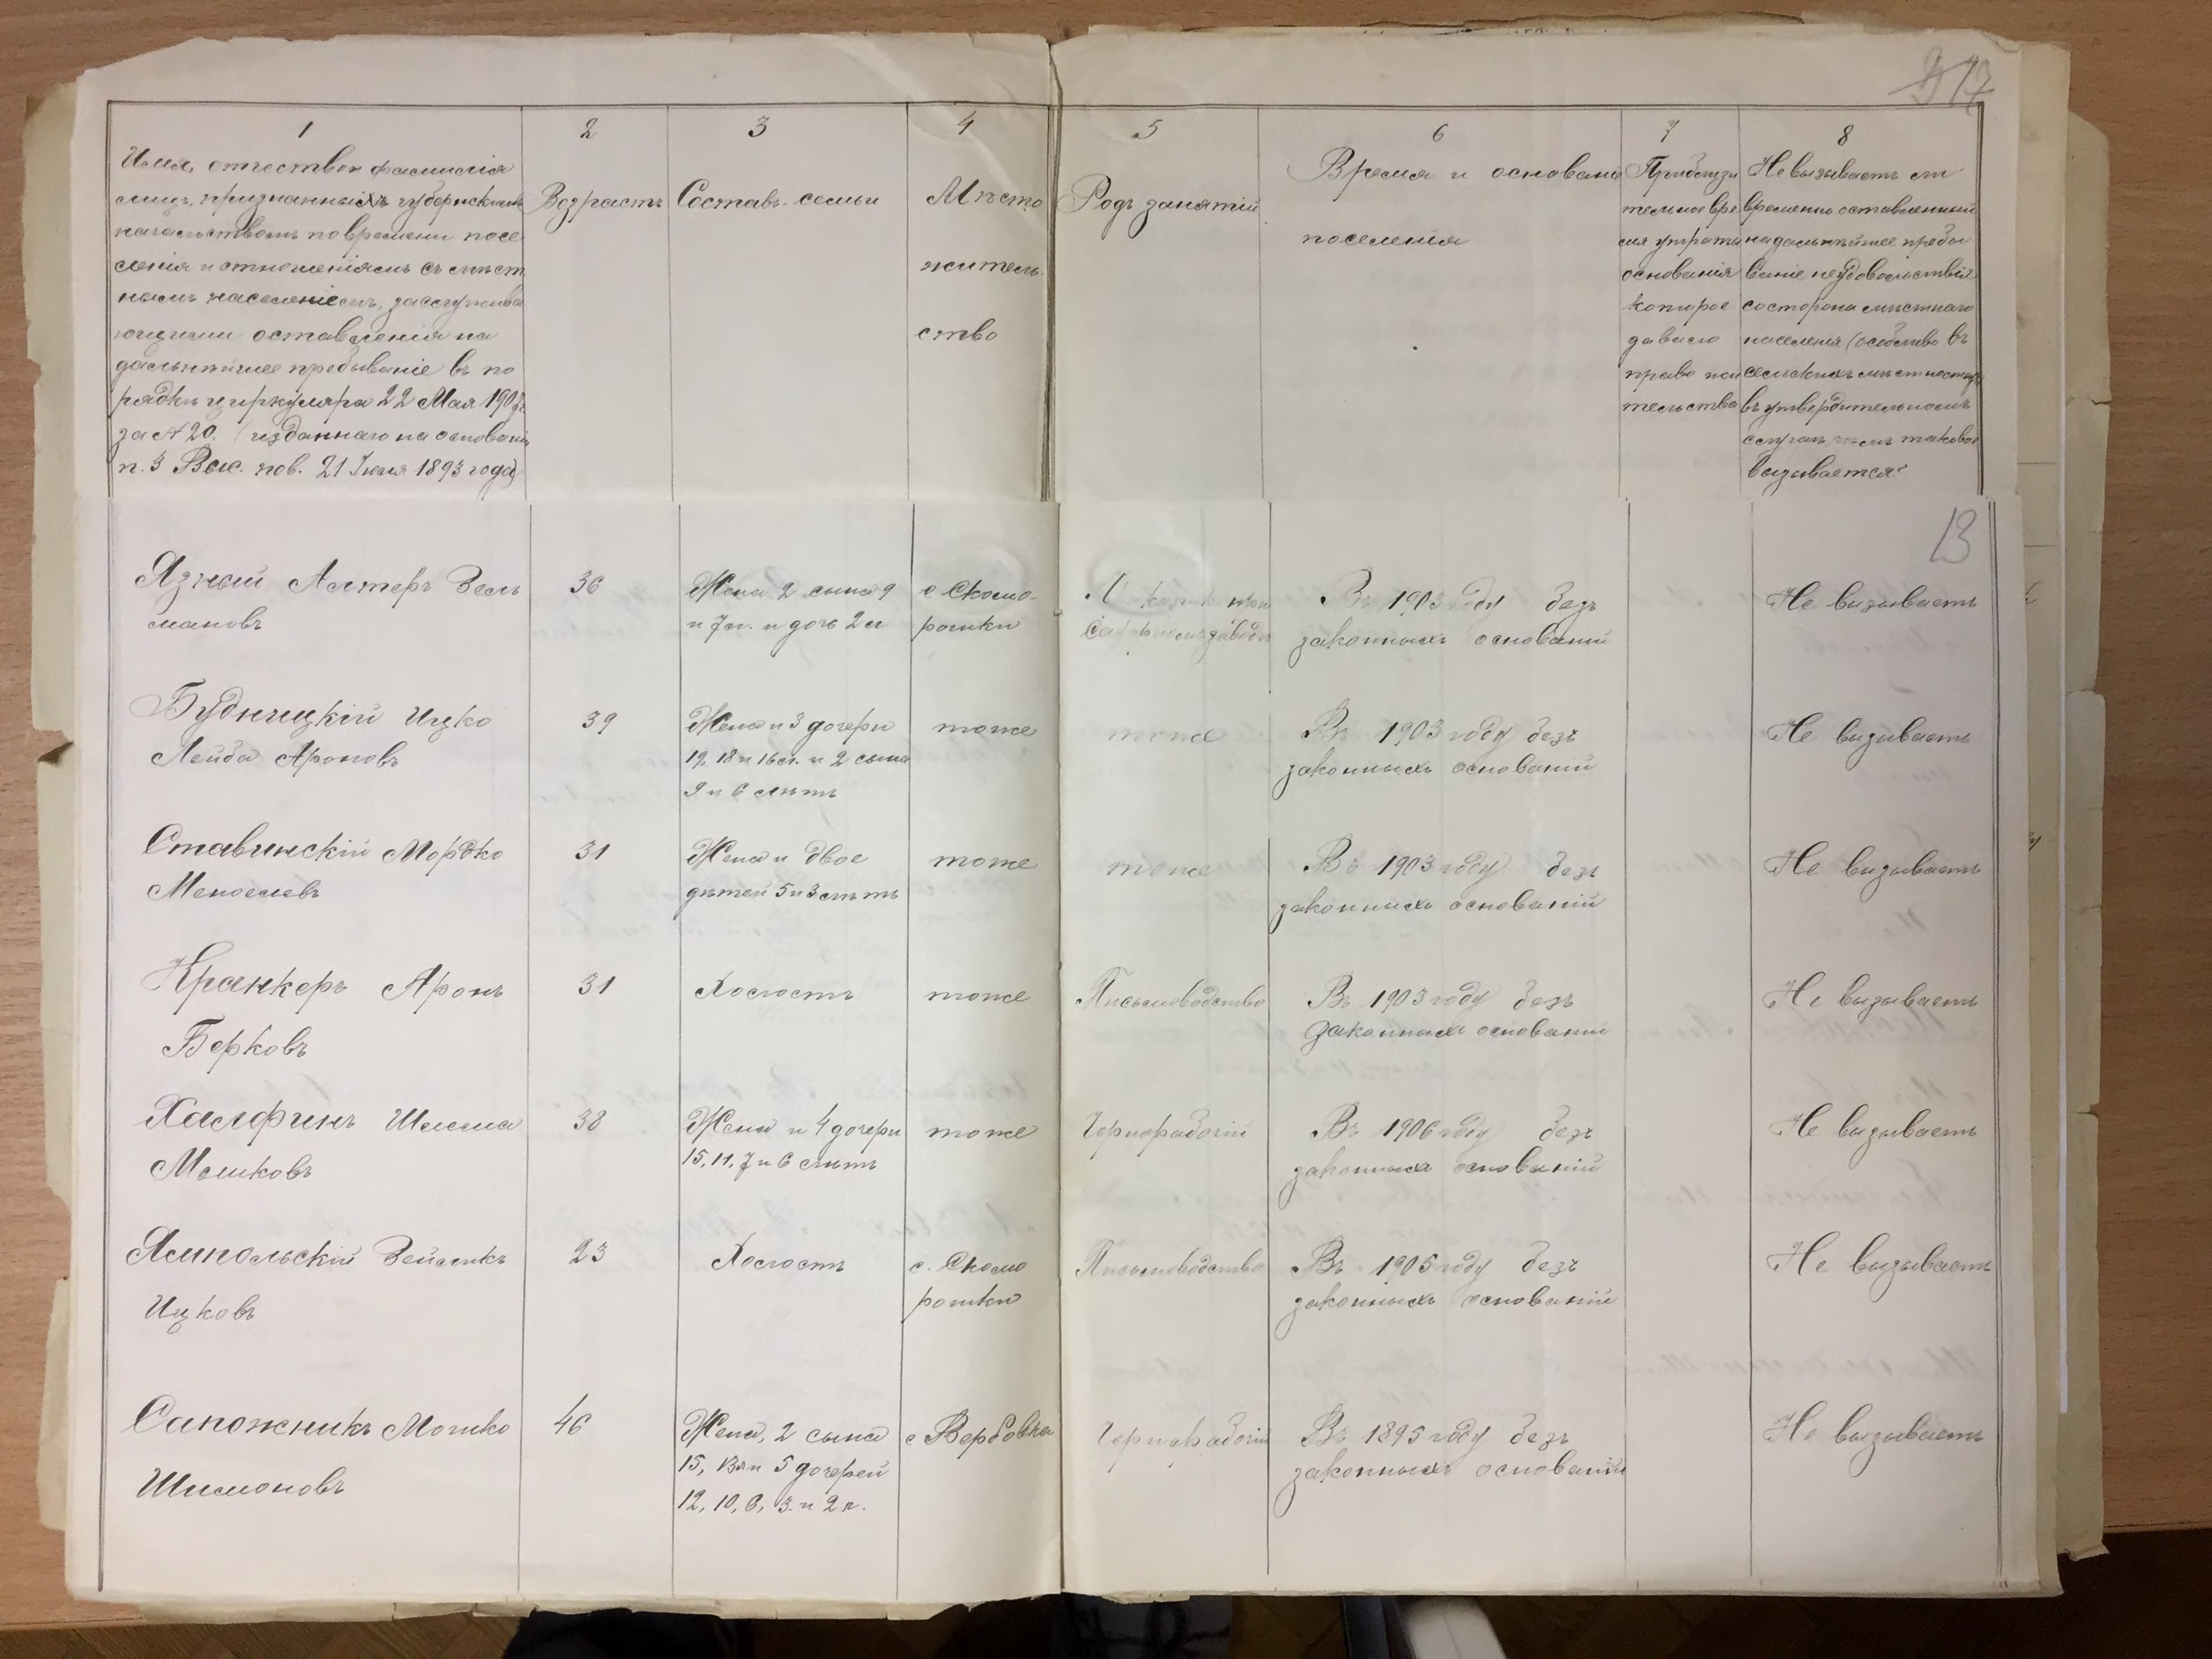 1
2
3
4
5
6
7
8
Имя, отчество и фамилія
лицъ, признанныхъ губернскимъ
начальствомъ по времени посе
ленія и отношеніямъ съ мѣст
нымъ населеніемъ, заслужива
ющими оставленія на
дальнѣйшее пребываніе въ по
рядкѣ циркуляра 22 Мая 1907 г.
за № 20. (изданнаго на основаніи
п. 3 Выс. пов. 21 Іюля 1893 года)
Возрастъ
Составъ семьи
Мѣсто
житель
ство
Родъ занятій
Время и основаніе
поселенія
Приблизи
тельное вре
мя утраты
основанія
которое
давало
право жи
тельства
Не вызываетъ ли
временно оставленный
на дальнѣйшее пребы
ваніе неудовольствія
со стороны мѣстнаго
населенія (особливо въ
сельскихъ мѣстностяхъ
въ утвердительномъ
случаѣ, чѣмъ таковое
вызывается?
13
Язный Алтеръ Зель
мановъ
36
Жена 2 сына 9
и 7 л. и дочь 2 л
с Скомо-
рошки
Въ 1903 году безъ
законныхъ основаній
Не вызываетъ
Будницкій Ицко
Лейба Ароновъ
39
Жена и 3 дочери
19, 18 и 16 л. и 2 сына
9 и 6 лѣтъ
тоже
тоже
Въ 1903 году безъ
законныхъ основаній
Не вызываетъ
Ставинскій Мордко
Менделевъ
31
Жена и двое
дѣтей 5 и 3 лѣтъ
тоже
тоже
Въ 1903 году безъ
законныхъ основаній
Не вызываетъ
Кранкеръ Аронъ
Берковъ
31
Холостъ
тоже
Письмоводство
Въ 1903 году безъ
законныхъ основаній
Не вызываетъ
Халфинъ Шлема
Мошковъ
38
Жена и 4 дочери
15, 11, 7 и 6 лѣтъ
тоже
Чернорабочій
Въ 1906 году безъ
законныхъ основаній
Не вызываетъ
Ямпольскій Зейликъ
Ицковъ
23
Холостъ
с. Скомо
рошки
Письмоводство
Въ 1905 году безъ
законныхъ основаній
Не вызываетъ
Сапожникъ Мошко
Шимоновъ
46
Жена, 2 сына
15, 13 л и 5 дочерей
12, 10, 6, 3. и 2 л.
с Вербовка
Чернорабочій
Въ 1895 году безъ
законныхъ основаній
Не вызываетъ